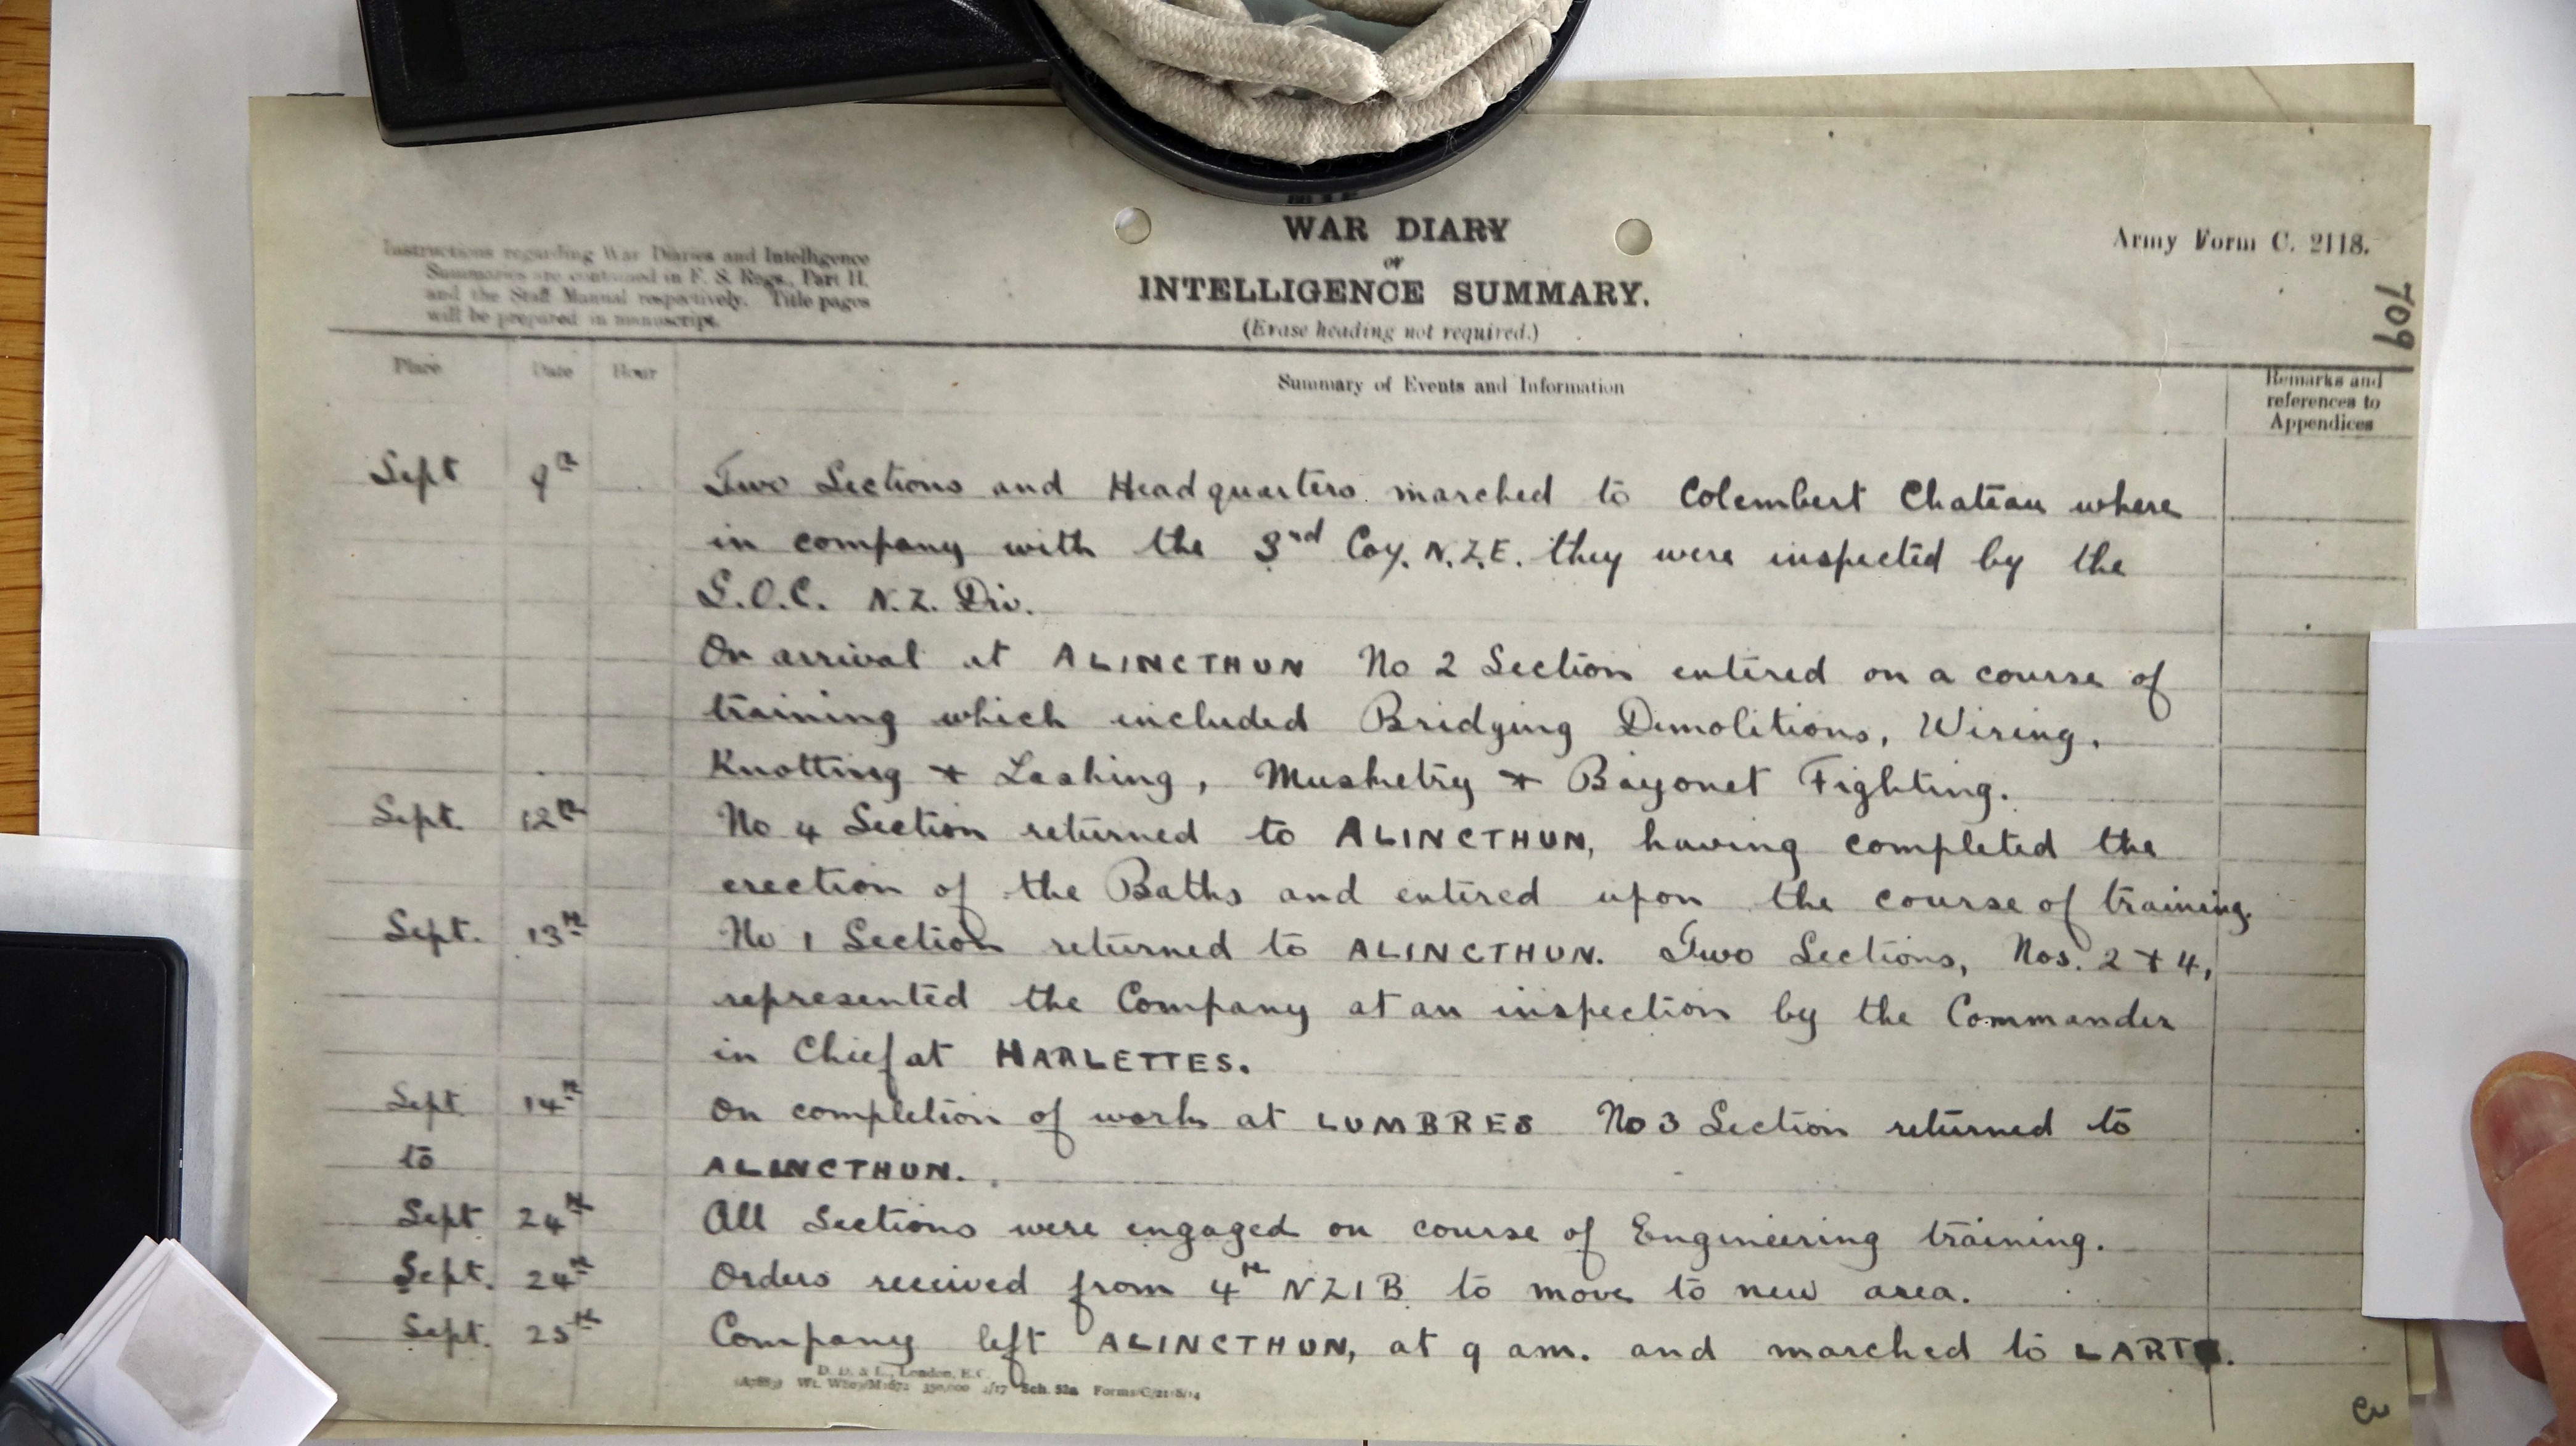 WAR DIARY
or
INTELLIGENCE SUMMARY.
(Erase heading not required.)
Army Form C. 2118.
709
Instructions regarding War Diaries and Intelligence
Summaries are contained in F. S. Regs., Part II.
and the Staff Manual respectively. Title pages
will be prepared in manuscript.
Place Date Hour Summary of Events and Information Remarks and
references to
Appendices
Sept 9th Two Sections and Headquarters marched to Colembert Chateau where
in company with the 3rd Coy. N.Z.E. they were inspected by the
G.O.C. N.Z. Div.
On arrival at ALINCTHUN No 2 Section entered on a course of
training which included Bridging Demolitions, Wiring,
Knotting + Lashing, Musketry + Bayonet Fighting.
Sept. 12th No 4 Section returned to ALINCTHUN, having completed the
erection of the Baths and entered upon the course of training.
Sept. 13th No 1 Section returned to ALINCTHUN. Two Sections, Nos. 2 + 4,
represented the Company at an inspection by the Commander
in Chief at HARLETTES.
Sept 14th On completion of work at LUMBRES No 3 Section returned to
to ALINCTHUN.
Sept 24th All Sections were engaged on course of Engineering training.
Sept. 24th Orders received from 4th NZIB to move to new area.
Sept. 25th Company left ALINCTHUN, at 9 am. and marched to
D. D. & L., London, E.C.
Sch. 52a Forms/C/2118/14